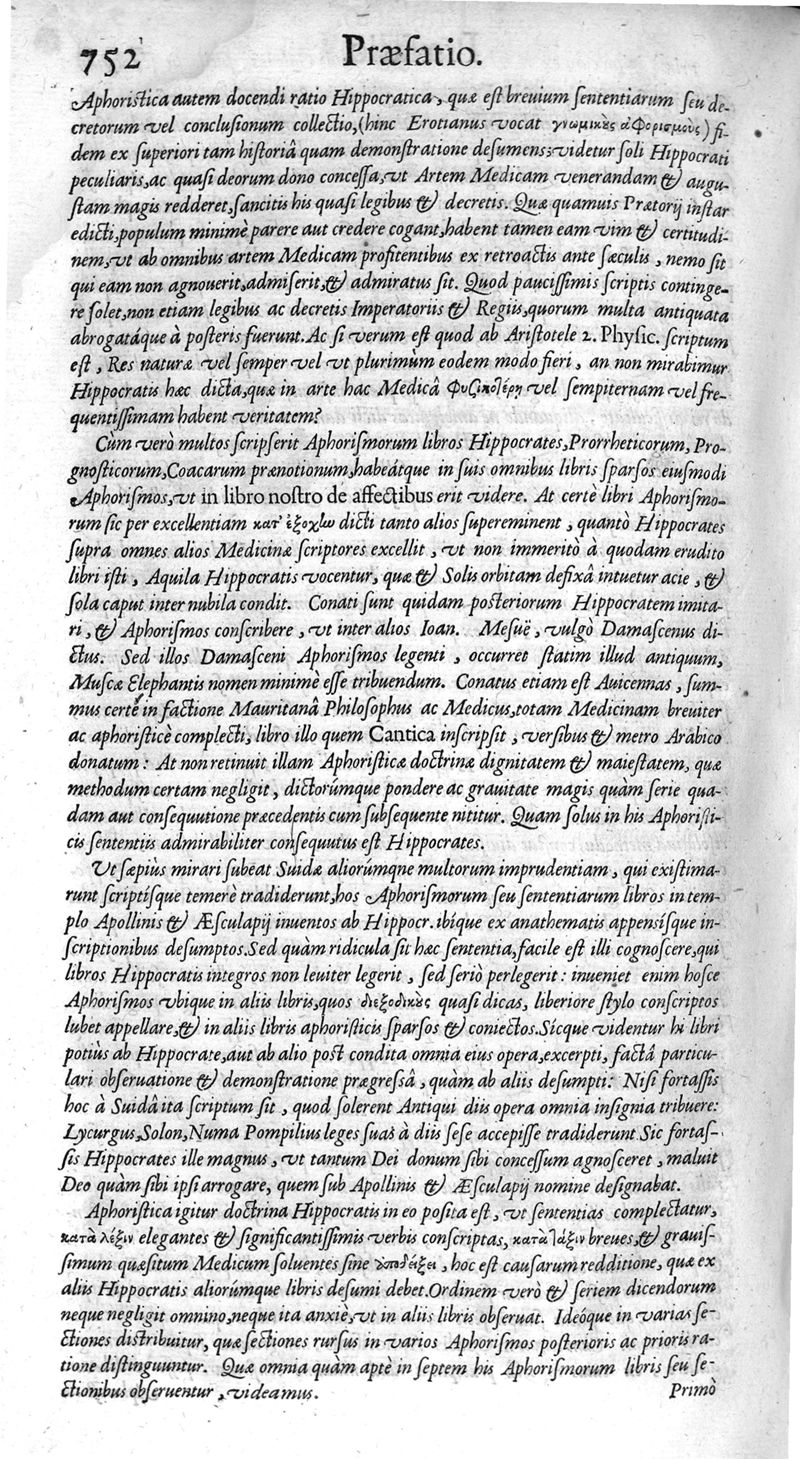 752 Præfatio.
Aphoristica autem docendi ratio Hippocratica, quæ est breuium sententiarum seu de-
cretorum vel conclusionum collectio, (hinc Erotianus vocat γνωμικὼς ἀφορισμοὺς) fi-
dem ex superiori tam historiâ quam demonstratione desumens: videtur soli Hippocrati
peculiaris, ac quasi deorum dono concessa, vt Artem Medicam venerandam & augu-
stam magis redderet, sancitis his quasi legibus & decretis. Quæ quamuis Prætorij instar
edicti, populum minimè parere aut credere cogant, habent tamen eam vim & certitudi-
nem, vt ab omnibus artem Medicam profitentibus ex retroactis ante sæculis, nemo sit
qui eam non agnouerit, admiserit, & admiratus sit. Quod paucissimis scriptis continge-
re solet, non etiam legibus ac decretis Imperatoriis & Regiis, quorum multa antiquata
abrogatáque à posteris fuerunt. Ac si verum est quod ab Aristotele 2. Physic. scriptum
est, Res naturæ vel semper vel vt plurimùm eodem modo fieri, an non mirabimur
Hippocratis hæc dicta, quæ in arte hac Medicâ vel sempiternam vel fre-
quentissimam habent veritatem?
Cùm verò multos scripserit Aphorismorum libros Hippocrates, Prorrheticorum, Pro-
gnosticorum, Coacarum prænotionum, habeátque in suis omnibus libris sparsos eiusmodi
Aphorismos, vt in libro nostro de affectibus erit videre. At certè libri Aphorismo-
rum sic per excellentiam κατ' ἐξοχὴν dicti tanto alios supereminent, quantò Hippocrates
supra omnes alios Medicinæ scriptores excellit, vt non immeritò à quodam erudito
libri isti, Aquila Hippocratis vocentur, quæ & Solis orbitam defixâ intuetur acie, &
sola caput inter nubila condit. Conati sunt quidam posteriorum Hippocratem imita-
ri, & Aphorismos conscribere, vt inter alios Ioan. Mesuë, vulgò Damascenus di-
ctus. Sed illos Damasceni Aphorismos legenti, occurret statim illud antiquum,
Muscæ Elephantis nomen minimè esse tribuendum. Conatus etiam est Auicennas, sum-
mus certè in factione Mauritanâ Philosophus ac Medicus, totam Medicinam breuiter
ac aphoristicè complecti, libro illo quem Cantica inscripsit, versibus & metro Arabico
donatum: At non retinuit illam Aphoristicæ doctrinæ dignitatem & maiestatem, quæ
methodum certam negligit, dictorúmque pondere ac grauitate magis quàm serie qua-
dam aut consequutione præcedentis cum subsequente nititur. Quam solus in his Aphoristi-
cis sententiis admirabiliter consequutus est Hippocrates.
Vt sæpiùs mirari subeat Suidæ aliorúmqne multorum imprudentiam, qui existima-
runt scriptísque temerè tradiderunt, hos Aphorismorum seu sententiarum libros in tem-
plo Apollinis & Æsculapij inuentos ab Hippocr. ibíque ex anathematis appensísque in-
scriptionibus desumptos. Sed quàm ridicula sit hæc sententia, facile est illi cognoscere, qui
libros Hippocratis integros non leuiter legerit, sed seriò perlegerit: inueniet enim hosce
Aphorismos vbique in aliis libris, quos διεξοδικὼς quasi dicas, liberiore stylo conscriptos
lubet appellare, & in aliis libris aphoristicis sparsos & coniectos. Sícque videntur hi libri
potiùs ab Hippocrate, aut ab alio post condita omnia eius opera, excerpti, factâ particu-
lari obseruatione & demonstratione prægressâ, quàm ab aliis desumpti: Nisi fortassis
hoc à Suidâ ita scriptum sit, quod solerent Antiqui diis opera omnia insignia tribuere:
Lycurgus, Solon, Numa Pompilius leges suas à diis sese accepisse tradiderunt. Sic fortas-
sis Hippocrates ille magnus, vt tantum Dei donum sibi concessum agnosceret, maluit
Deo quàm sibi ipsi arrogare, quem sub Apollinis & Æsculapij nomine designabat.
Aphoristica igitur doctrina Hippocratis in eo posita est, vt sententias complectatur,
κατὰ λέξιν elegantes & significantissimis verbis conscriptas, κατὰ τάξιν breues, & grauis-
simum quæsitum Medicum soluentes sine ἀποδείξει, hoc est causarum redditione, quæ ex
aliis Hippocratis aliorúmque libris desumi debet. Ordinem verò & seriem dicendorum
neque negligit omnino, neque ita anxiè, vt in aliis libris obseruat. Ideóque in varias se-
ctiones distribuitur, quæ sectiones rursus in varios Aphorismos posterioris ac prioris ra-
tione distinguuntur. Quæ omnia quàm aptè in septem his Aphorismorum libris seu se-
ctionibus obseruentur, videamus. Primò